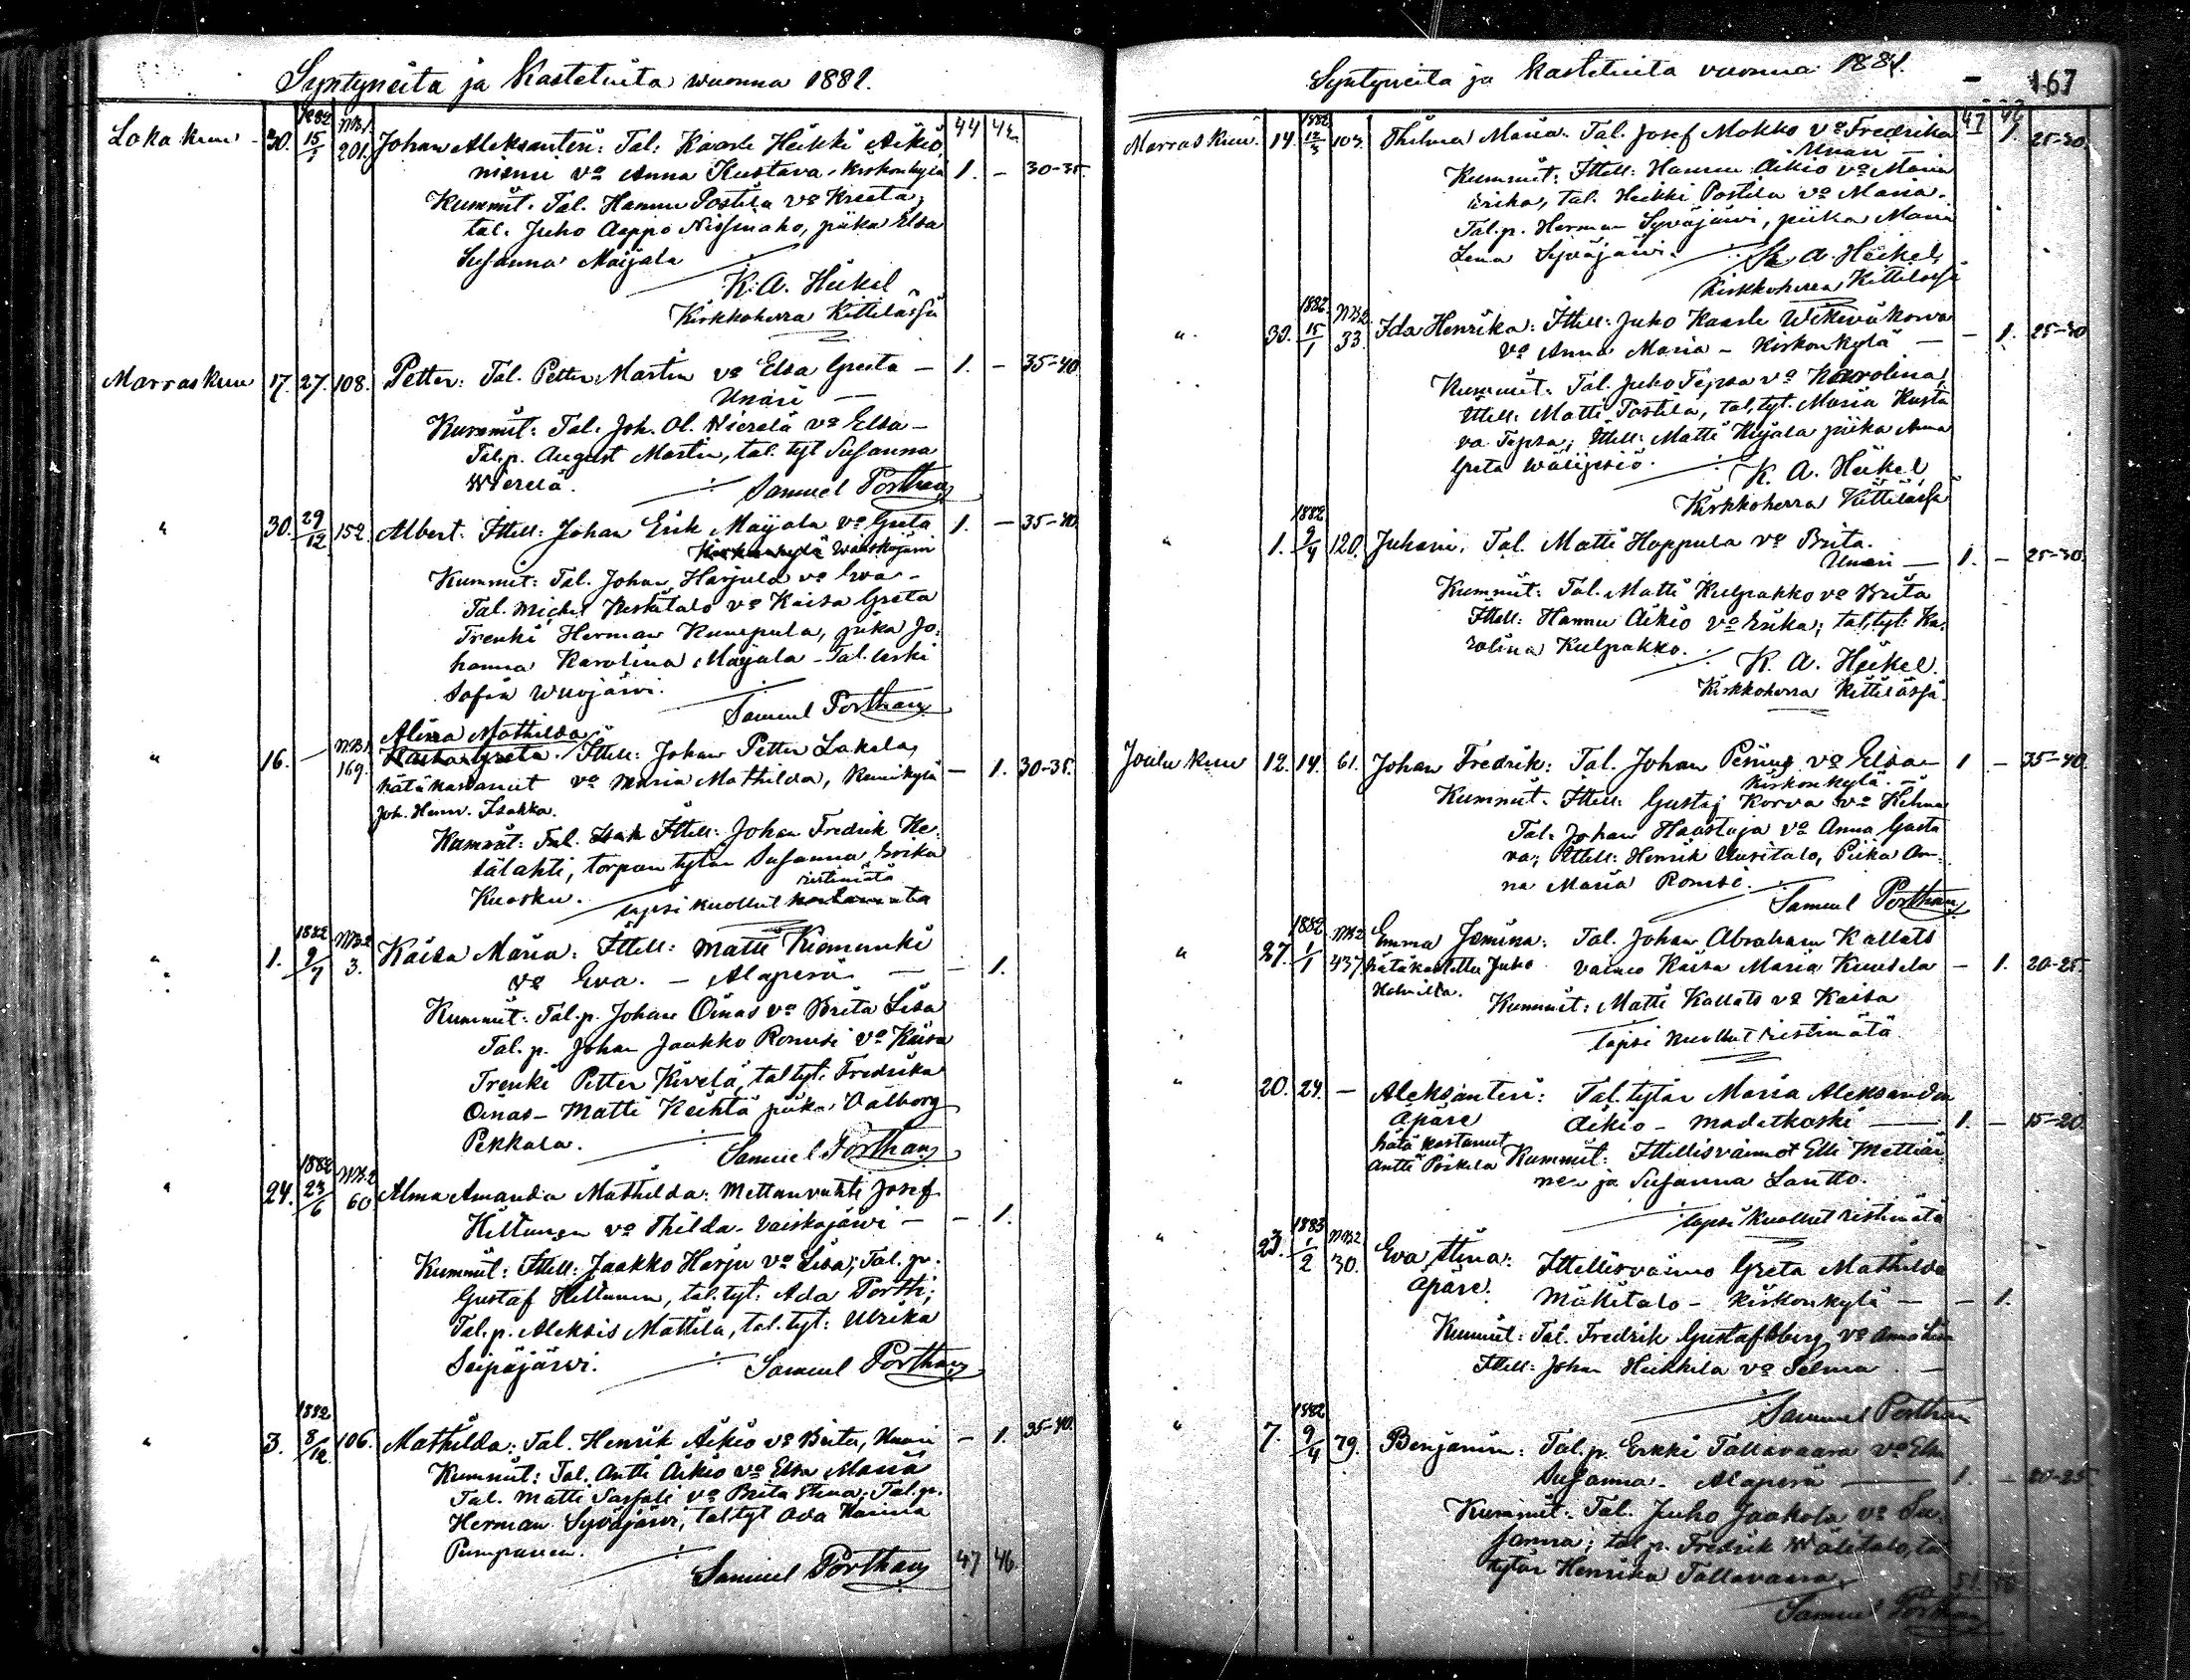 Syntyneitä ja Kastetuita wuonna 1881.
1882 NB1 44 42
Loka kuu 30. 15/1 201. Johan Aleksanteri: Tal: Kaarle Heikki Aikio
niemi vo Anna Kustava, Kirkonkylä 1. - 30-35.
Kummit. Tal. Hannu Postila vo Kreeta;
tal. Juho Aappo Nissinaho, piika Elsa
Susanna Maijala
K. A. Heikel
Kirkkoherra Kittilässä
Marras kuu 17. 27. 108. Petter: Tal. Petter Martin vo Elsa Greeta - 1. - 35-40
Unari -
Kummit: Tal. Joh. Ol. Wierelä vo Elsa -
Tal.p. August Martin, tal. tyt Susanna
Wierelä.
Samuel Porthan
" 30. 29/12 152. Albert: Ittell: Johan Erik Maijala vo Greta 1. - 35-40
Kirkonkylä Waiskojärvi
Kummit: Tal. Johan Harjula vo Eva -
Tal. Michel Keskitalo vo Kaisa Greta
Trenki Herman Kunepula, piika Jo-
hanna Karolina Maijala - Tal. leski
Sofia Wuojärvi.
Samuel Porthan
Alina Mathilda
" 16. - NB1 169. Greta. Ittell: Johan Petter Lakela
hätäkastanut vo Maria Mathilda, Kemikylä - 1. 30-35.
Joh. Henr. Isakka.
Kummit: Tal. Ittell: Johan Fredrik Ke-
sälahti, torpan tytär Susanna Erika
ristimätä
Kuosku. lapsi kuollut kastamata
1882 NB2
" 1. 9/4 3. Kaisa Maria: Ittell: Matti Kiemunki
vo Eva. - Alaperä - - 1.
Kummit: Tal.p. Johan Oinas vo Brita Lisa
Tal. p. Johan Jaakko Romsi vo Kaisa
Trenki Petter Kivelä, tal tyt. Fredrika
Oinas - Matti Keihtä piika Valborg
Pekkala.
Samuel Porthan
1882 NB2
" 24. 23/6 60 Alma Amanda Mathilda: Mettanvahti Josef
Hiltunen vo Thilda - Vaiskojärvi - - 1.
Kummit: Ittell: Jaakko Harju vo Lisa; Tal. p.
Gustaf Hiltunen, tal. tyt: Ada Portti;
Tal. p. Aleksis Mattila, tal. tyt: Ulrika
Seipäjärvi.
Samuel Porthan
1882
" 3. 8/12 106. Mathilda: Tal. Henrik Aikio vo Brita, Unari - 1. 35-40.
Kummit: Tal. Antti Aikio vo Elsa Maria
Tal. Matti Sassali vo Brita Stina; Tal. p.
Herman Syväjärvi, tal tyt Ada
Pumpanen.
Samuel Porthan 47 46
Syntyneitä ja Kastetuita vuonna 1881. - 167
1882 47 46
Marras kuu. 14. 12/3 104. Thilma Maria. Tal. Josef Mokko vo Fredrika 1. 25-30.
Unari -
Kummit: Ittell: Hannu Aikio vo Maria
Erika, tal. Heikki Postila vo Maria.
Tal.p. Herman Syväjärvi, piika Maria
Lena Syväjärvi.
K. A. Heikel
Kirkkoherra Kittilässä
1882 NB2
" 30. 15/1 33. Ida Henrika: Ittell: Juho Kaarle Wikeväkorva
vo Anna Maria - Kirkonkylä - - 1. 25-30
Kummit: Tal. Juho Tepsa vo Karolina,
Ittell: Matti Postila, tal, tyt. Maria Kusta
va Tepsa; Ittell: Matti Kujala piika Anna
Greta Wälijesiö.
K. A. Heikel
Kirkkoherra Kittilässä
1882
" 1. 9/4 120. Juhani. Tal. Matti Hoppula vo Brita.
Unari - 1. - 25-30.
Kummit: Tal. Matti Kulpakko vo Brita
Ittell: Hannu Aikio vo Erika; tal. tyt: Ka-
rolina Kulpakko.
K. A. Heikel.
Kirkkoherra Kittilässä
Joulu kuu 12. 14. 61. Johan Fredrik: Tal. Johan Pening vo Elsa - 1 - 35-40.
Kirkonkylä.
Kummit. Ittell: Gustaf Korva vo Hilma
Tal: Johan Haastaja vo Anna Gusta
va; Ittell: Henrik Uusitalo, Piika An-
na Maria Romsi.
Samuel Porthan
1882 NB2
" 27. 1/1 437. Emma Jemina: Tal. Johan Abraham Kallats
hätäkastettu Juho vaimo Kaisa Maria Kuusela - 1. 20-25.
Kummit: Matti Kallats vo Kaisa
lapsi kuollut ristimätä
" 20. 24. - Aleksanteri: Tal. tytär Maria Aleksandra
äpäre Aikio - Madetkoski - 1. - 15-20.
hätä kastanut
Antti Poikela Kummit: Ittellisvaimot Elli Mattiai-
nen ja Susanna Lantto.
lapsi kuollut ristimätä
1883 NB2
" 23. 1/2 30. Eva Stina: Ittellisvaimo Greta Mathilda
äpäre. Mäkitalo - Kirkonkylä - - 1.
Kummit: Tal. Fredrik Gustafsberg vo Anna Lisa
Ittell: Johan Heikkilä vo Selma. -
Samuel Porthan
1882
" 7. 9/4 79. Benjamin: Tal. p. Erkki Tallavaara vo Elsa
Susanna. Alaperä - 1. - 20-25
Kummit: Tal. Juho Jaakola vo Su-
sanna; tal. p. Fredrik Wälitalo, tal
tytär Henrika Tallavaara
51 50
Samuel Porthan